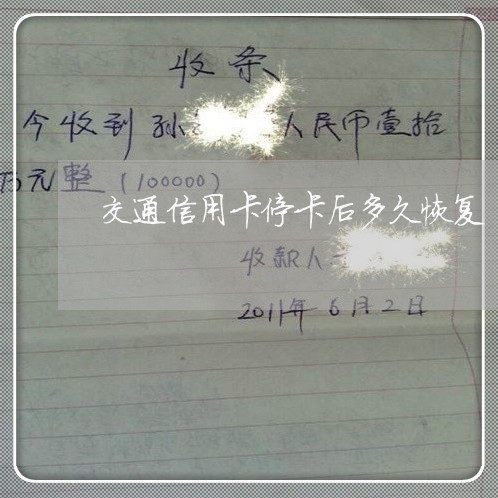 收条
今收到孙 人民币壹拾
万元整（100000）
交通信用卡停卡后多久恢复
收款人
2011年6月2日